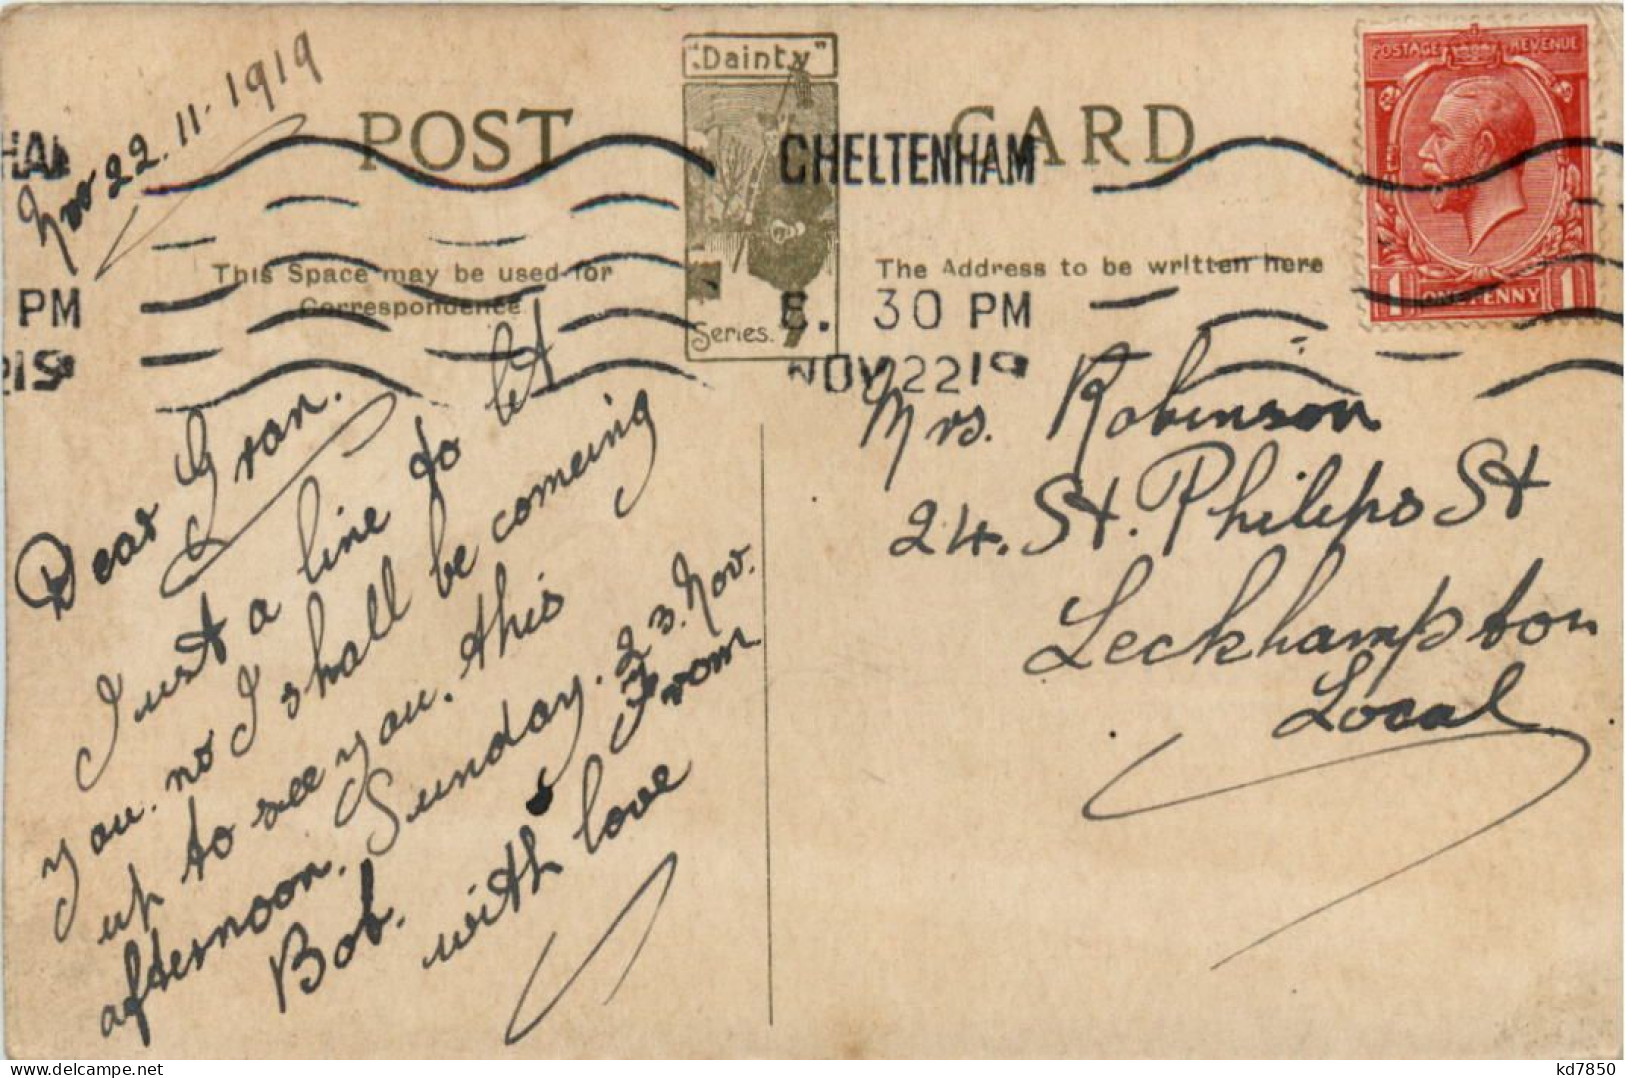 Nov 22.11.1919
POST CARD
"Dainty"
Series.
CHELTENHAM
8. 30 PM
NOV 22 19
PM
19
This Space may be used for
Correspondence
The Address to be written here
POSTAGE REVENUE
1 ONE PENNY 1
Dear Gran.
Just a line to let
you. no I shall be comeing
up to see you. this
afternoon. Sunday. 23. Nov.
From
Bob. with love
Mrs. Robinson
24. St. Philips St
Leckhampton
Local
kd7850